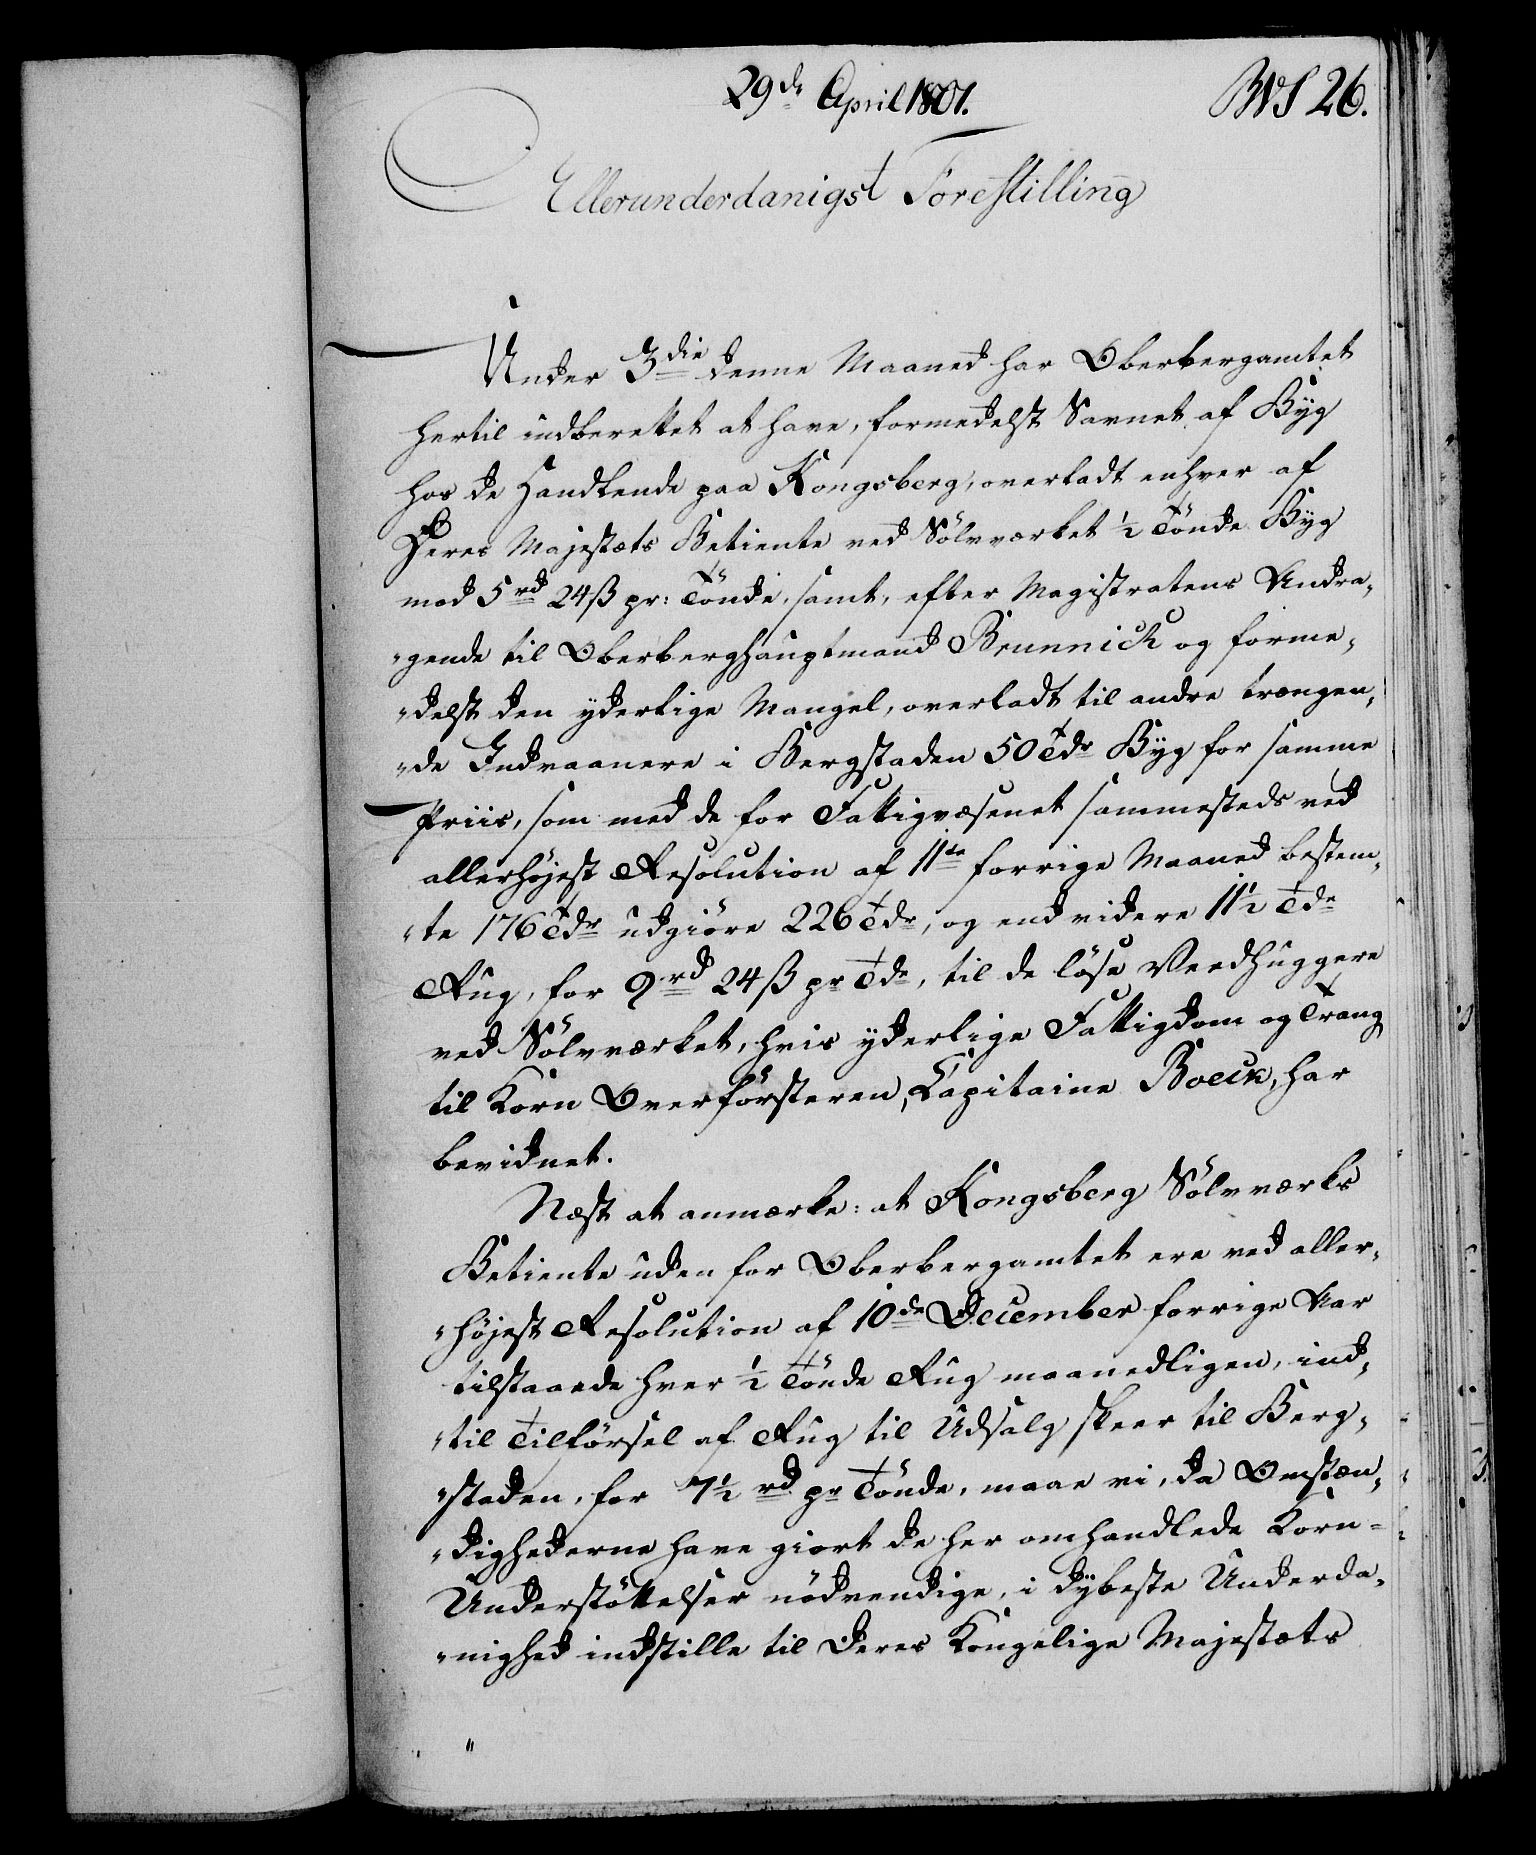 29de April 1801.
BVS 26.
Allerunderdanigst Forestilling
Under 3die denne Maaned har Oberbergamtet
hertil indberettet at have, formedelst Savnet af Byg
hos de Handlende paa Kongsberg, overladt enhver af
Deres Majestæts Betiente ved Sölvværket ½ Tönde Byg
mod 5 rd 24 ß pr: Tönde, samt, efter Magistratens Andra-
"gende til Oberberghauptmand Brunnich og forme-
"delst den yderlige Mangel, overladt til andre trængen-
"de Indvaanere i Bergstaden 50 Tdr Byg for samme
Priis, som med de for Fattigvæsenet sammesteds ved
allerhöjest Resolution af 11te forrige Maaned bestem-
"te 176 Tdr udgiöre 226 Tdr, og end videre 11½ Tde
Rug, for 9 rd 24 ß pr Tde, til de löse Veedhuggere
ved Sölvværket, hvis yderlige Fattigdom og Trang
til Korn Overförsteren, Capitaine Boeck, har
bevidnet.
Næst at anmærke: at Kongsberg Sölvværks
Betiente uden for Oberbergamtet ere ved aller-
"höjest Resolution af 10de December forrige Aar
tilstaaede hver ½ Tönde Rug maanedligen, ind-
"til Tilförsel af Rug til Udsalg skeer til Berg-
"staden, for 7½ rd pr Tönde, maae vi, da Omstæn-
"dighederne have giort de her omhandlede Korn-
Understöttelser nödvendige, i dybeste Underda-
"nighed indstille til Deres Kongelige Majestæts